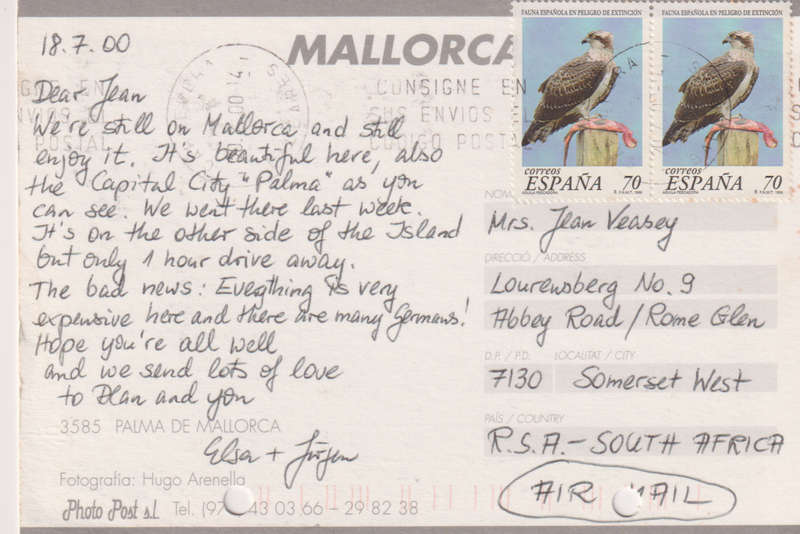 18.7.00
MALLORCA
CONSIGNE EN
SUS ENVIOS EL
CODIGO POSTAL
FAUNA ESPAÑOLA EN PELIGRO DE EXTINCIÓN
FAUNA ESPAÑOLA EN PELIGRO DE EXTINCIÓN
correos
ESPAÑA 70
correos
ESPAÑA 70
Dear Jean
We're still on Mallorca and still
enjoy it. It's beautiful here, also
the Capital City "Palma" as you
can see. We went there last week.
It's on the other side of the Island
but only 1 hour drive away.
The bad news: Evegthing is very
expensive here and there are many Germans!
Hope you're all well
and we send lots of love
to and you
Elsa + Jürgen
3585 PALMA DE MALLORCA
Fotografía: Hugo Arenella
Photo Post s.l. Tel. (97 43 03 66 – 29 82 38
Mrs. Jean Veasey
DIRECCIÓ / ADDRESS
Lourensberg No. 9
Abbey Road / Rome Glen
D.P. / P.D. LOCALITAT / CITY
7130 Somerset West
PAÍS / COUNTRY
R.S.A. – SOUTH AFRICA
AIR MAIL